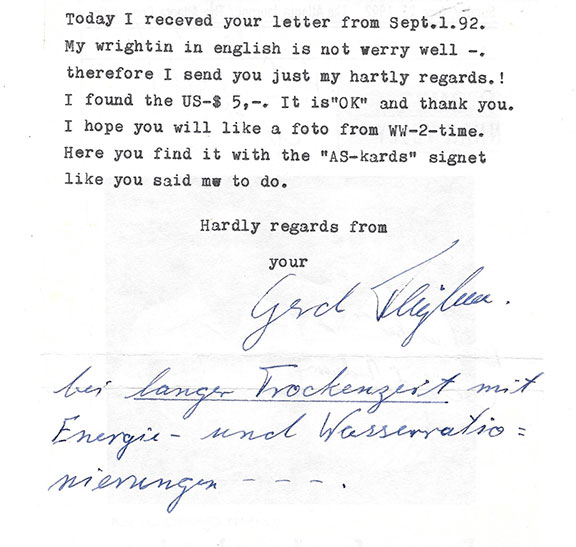 Today I receved your letter from Sept.1.92.
My wrightin in english is not werry well -.
therefore I send you just my hartly regards.!
I found the US-$ 5,-. It is"OK" and thank you.
I hope you will like a foto from WW-2-time.
Here you find it with the "AS-kards" signet
like you said me to do.
Hardly regards from
your
Gerd
bei langer Trockenzeit mit
Energie- und Wasserratio=
nierungen - - - .